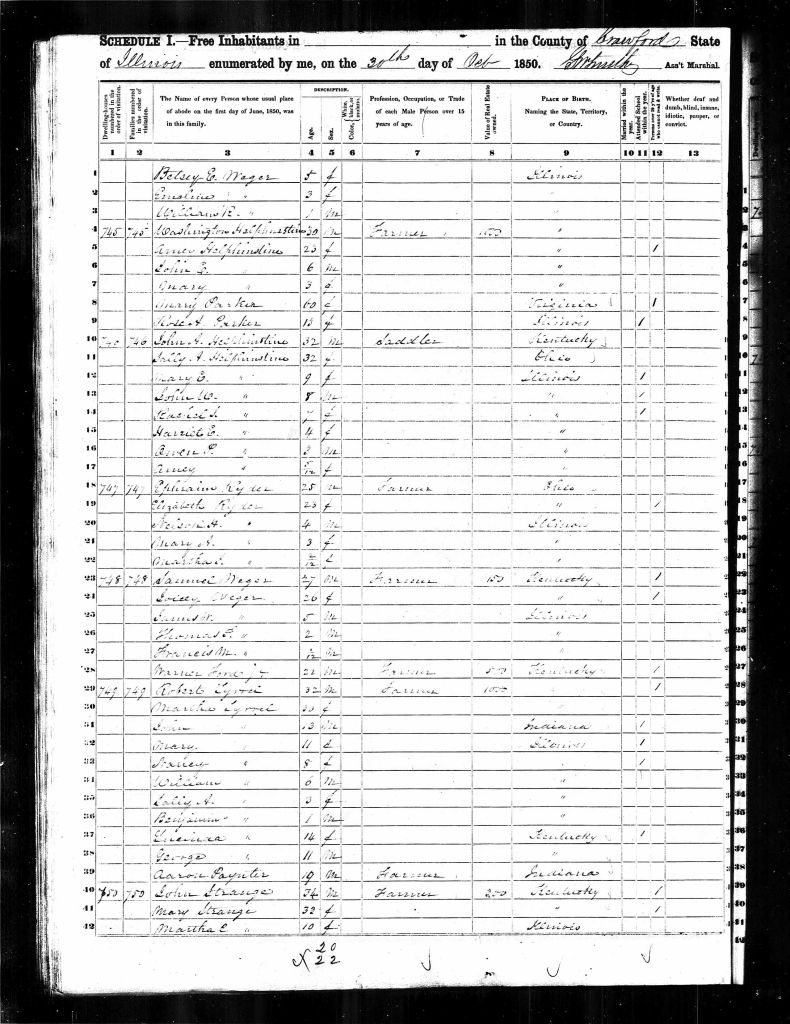 SCHEDULE I.—Free Inhabitants in in the County of Crawford State
of Illinois enumerated by me, on the 30th day of Oct 1850. Ass't Marshal.
Dwelling-houses numbered in the order of visitation.
Families numbered in the order of visitation.
The Name of every Person whose usual place of abode on the first day of June, 1850, was in this family.
DESCRIPTION.
Age.
Sex.
Color, White, black, or mulatto.
Profession, Occupation, or Trade of each Male Person over 15 years of age.
Value of Real Estate owned.
PLACE OF BIRTH.
Naming the State, Territory, or Country.
Married within the year.
Attended School within the year.
Persons over 20 y'rs of age who cannot read & write.
Whether deaf and dumb, blind, insane, idiotic, pauper, or convict.
1 2 3 4 5 6 7 8 9 10 11 12 13
1 Betsey E. Weger 5 f Illinois
2 Emeline " 3 f "
3 William R. " 1 m "
4 745 745 Washington Helphinstine 30 m Farmer "
5 Amey Helphinstine 23 f " 1
6 John E. " 6 m "
7 Mary " 3 f "
8 Mary Parker 60 f Virginia 1
9 Rose A. Parker 13 f Illinois 1
10 746 John A. Helphinstine 32 m Saddler Kentucky
11 Sally A. Helphinstine 32 f Ohio
12 Mary E. " 9 f Illinois 1
13 John W. " 8 m " 1
14 Rachel " 7 f " 1
15 Harriet E. " 4 f "
16 Owen P. " 3 m "
17 Amey " f "
18 747 747 Ephraim Ryder 25 m Farmer Ohio
19 Elizabeth Ryder 23 f " 1
20 Nelson H. " 4 m Illinois
21 Mary A. " 3 f "
22 Martha " f "
23 748 748 Samuel Weger 27 m Farmer 150 Kentucky 1
24 Weger 26 f " 1
25 James W. " 5 m Illinois
26 Thomas " 2 m "
27 Francis M. " m "
28 Warner 22 m Farmer 500 Kentucky 1
29 749 749 Robert 32 m Farmer 1000 " 1
30 Martha 30 f "
31 John " 13 m Indiana 1
32 Mary " 11 f Illinois 1
33 Nancy " 8 f " 1
34 William " 6 m "
35 Sally A. " 3 f "
36 Benjamin " 1 m "
37 Lucinda " 14 f Kentucky 1
38 George " 11 m "
39 Aaron Poynter 19 m Farmer Indiana
40 750 750 John Strange 34 m Farmer 200 Kentucky 1
41 Mary Strange 32 f " 1
42 Martha E. " 10 f Illinois
20
22